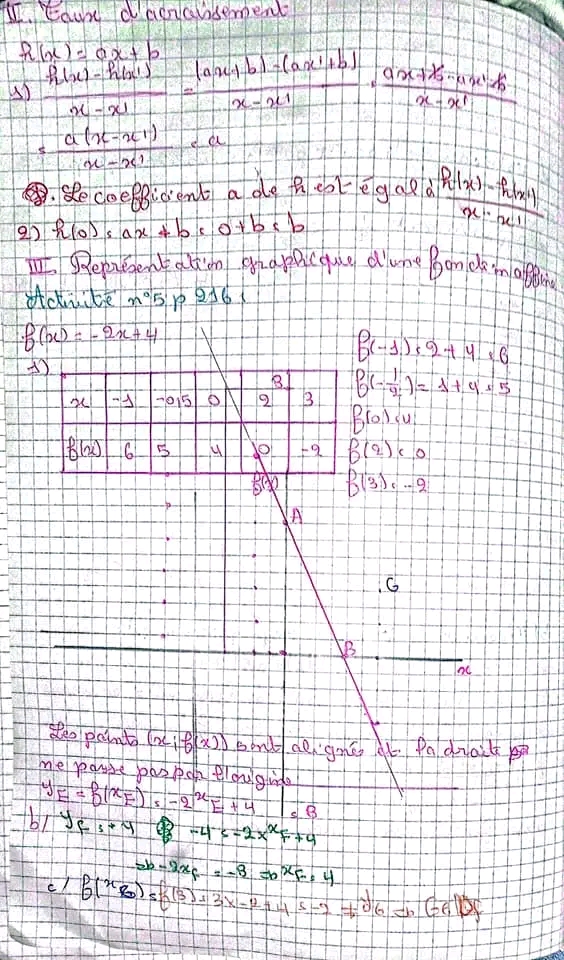 II. Taux d'accroissement
h(x) = ax + b
1) h(x) - h(x') / x - x' = (ax + b) - (ax' + b) / x - x' = ax + b - ax' - b / x - x'
= a(x - x') / x - x' = a
Le coefficient a de h est égal à h(x) - h(x') / x - x'
2) h(0) = ax + b = 0 + b = b
III. Représentation graphique d'une fonction affine
Activité n°5 p 216
f(x) = -2x + 4
1)
x -1 -0,5 0 2 3
f(x) 6 5 4 0 -2
f(-1) = 2 + 4 = 6
f(-1/2) = 1 + 4 = 5
f(0) = 4
f(2) = 0
f(3) = -2
B
f(x)
A
G
B
x
Les points (x; f(x)) sont alignés et la droite
ne passe pas par l'origine
yE = f(xE) = -2xE + 4 = 8
b/ yF = +4 -4 = -2 x xF + 4
=> -2xF = -8 => xF = 4
c/ f(xG) = f(3) = 3x -2 + 4 = -2 ≠ yG => G∉ Df